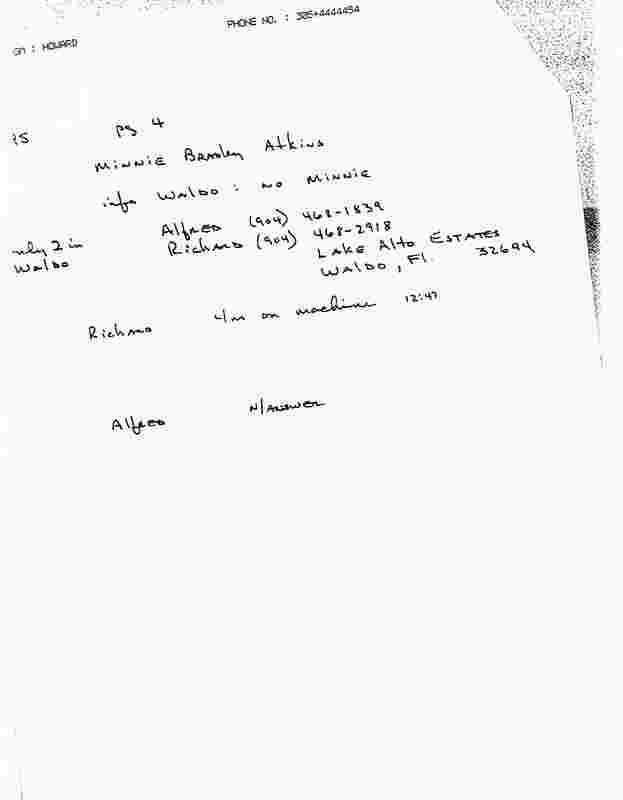 PHONE NO. : 305+4444454
: HOWARD
pg 4
MINNIE Bradley Atkins
info WALDO : NO MINNIE
Alfred (904) 468-1839
only 2 in Richard (904) 468-2918
Waldo LAKE Alto ESTATES
WALDO, Fl. 32694
Richard 4m on machine 12:47
Alfred N/ANSWER